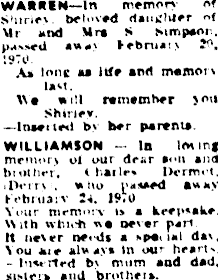 WARREN—In memory of
Shirley, beloved daughter of
Mr and Mrs S Simpson,
passed away February 20,
1970.
As long as life and memory
last,
We will remember you
Shirley.
—Inserted by her parents.
WILLIAMSON — In loving
memory of our dear son and
brother, Charles Dermot,
(Derry), who passed away
February 24, 1970
Your memory is a keepsake,
With which we never part,
It never needs a special day,
You are always in our hearts
- Inserted by mum and dad,
sisters and brothers.